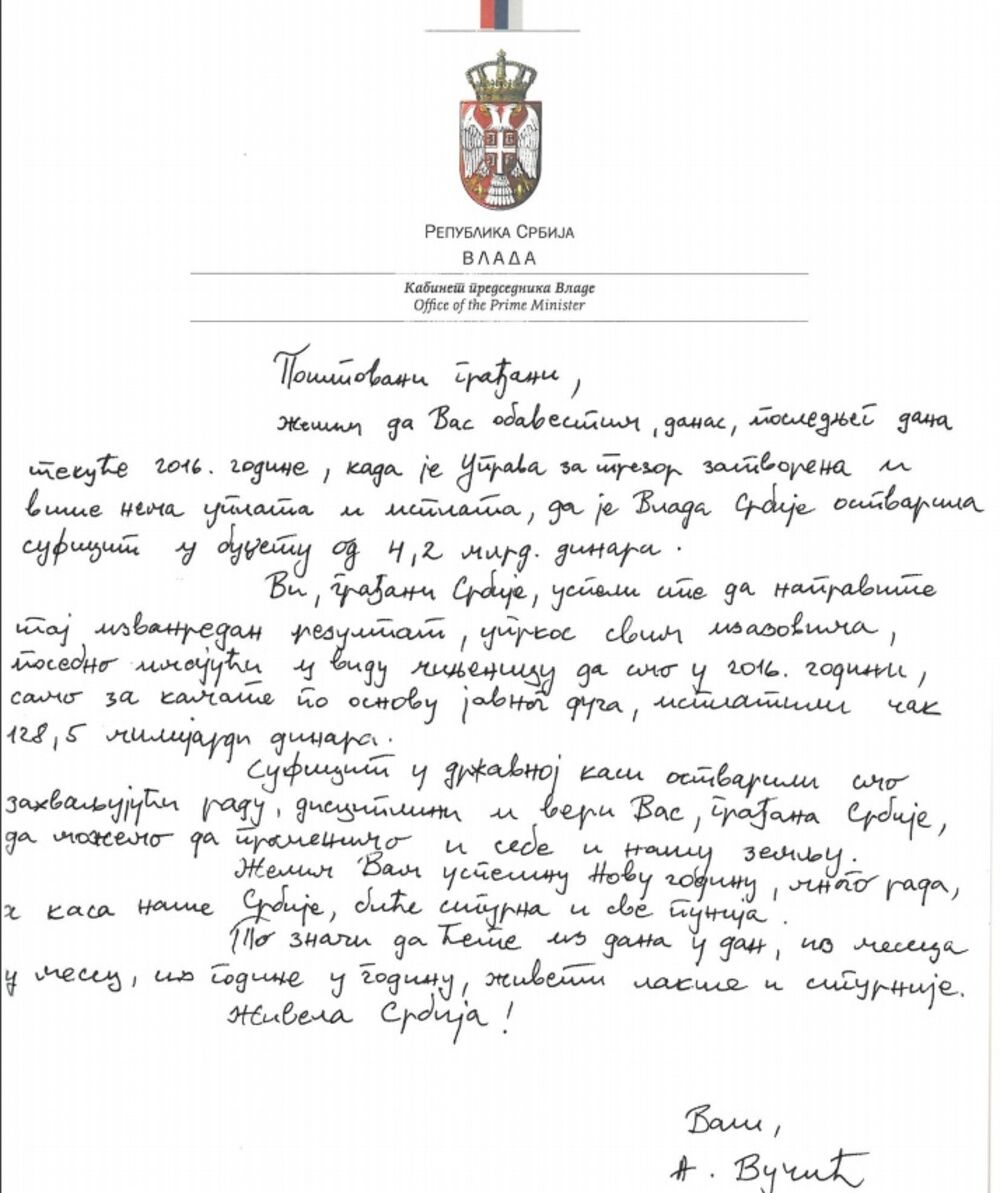 РЕПУБЛИКА СРБИЈА
ВЛАДА
Кабинет председника Владе
Office of the Prime Minister
Поштовани грађани,
желим да Вас обавестим, данас, последњег дана
текуће 2016. године, када је Управа за трезор затворена и
више нема уплата и исплата, да је Влада Србије остварила
суфицит у буџету од 4,2 млрд. динара.
Ви, грађани Србије, успели сте да направите
тај изванредан резултат, упркос свим изазовима,
посебно имајући у виду чињеницу да смо у 2016. години,
само за камате по основу јавног дуга, исплатили чак
128,5 милијарди динара.
Суфицит у државној каси остварили смо
захваљујући раду, дисциплини и вери Вас, грађана Србије,
да можемо да променимо и себе и нашу земљу.
Желим Вам успешну Нову годину, много рада,
каса наше Србије, биће сигурна и све пунија.
То значи да ћете из дана у дан, из месеца
у месец, из године у годину, живети лакше и сигурније.
Живела Србија!
Ваш,
А. Вучић